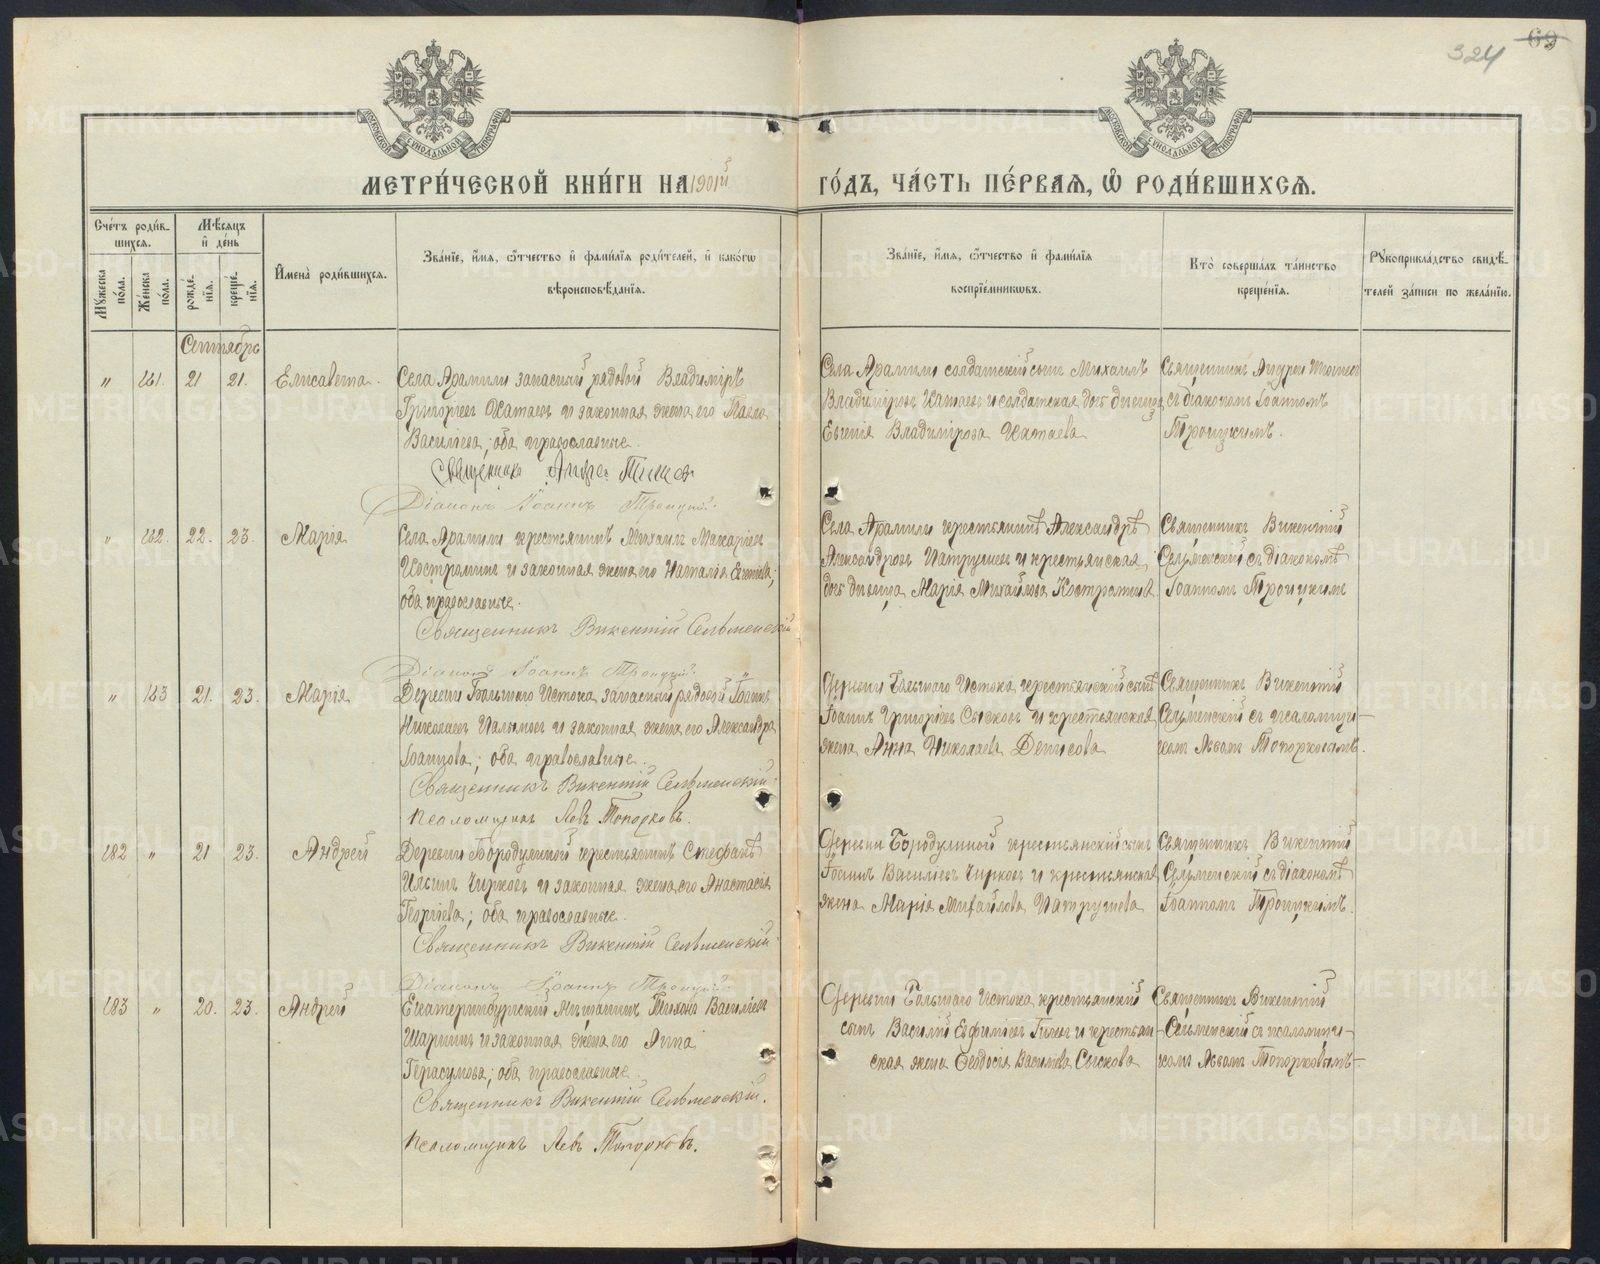 324 69
МЕТРИ́ЧЕСКОЙ КНИ́ГИ НА 1901й ГО́ДЪ, ЧА́СТЬ ПЕ́РВАЯ, Ѽ РОДИ́ВШИХСЯ.
Сче́тъ роди́вшихся.
Му́жеска по́ла.
Же́нска по́ла.
Мѣ́сяцъ и де́нь
рожде́нїя.
креще́нїя.
Имена̀ роди́вшихся.
Зва́нїе, и́мя, ѻ́тчество и фами́лїя роди́телей, и како́гѡ
вѣроисповѣ́данїя.
Зва́нїе, и́мя, ѻ́тчество и фами́лїя
воспрїе́мниковъ.
Кто̀ соверша́лъ та́инство
креще́нїя.
Рꙋкоприкла́дство свидѣ́телей за́писи по жела́нїю.
Сентябрь
" 161. 21 21. Елисавета.
Села Арамили запасный рядовой Владиміръ
Григоріевъ Катаевъ и законная жена его Павла
Василіева, оба православные.
Священникъ Андрей
Діаконъ Іоаннъ Троицкій.
Села Арамили солдатскій сынъ Михаилъ
Владиміровъ Катаевъ и солдатская дочь девица
Евгенія Владимірова Катаева
Священникъ Андрей
съ діакономъ Іоанномъ
Троицкимъ.
" 162. 22. 23. Марія
Села Арамили крестьянинъ Михаилъ Макаріевъ
Костроминъ и законная жена его Наталія Евгеніева;
оба православные.
Священникъ Викентій Сельменскій
Діаконъ Іоаннъ Троицкій.
Села Арамили крестьянинъ Александръ
Александровъ Патрушевъ и крестьянская
дочь девица Марія Михайлова Костромина
Священникъ Викентій
Сельменскій съ діакономъ
Іоанномъ Троицкимъ
" 163 21. 23. Марія
Деревни Большаго Истока запасный рядовой Іоаннъ
Николаевъ и законная жена его Александра
Іоаннова; оба православные.
Священникъ Викентій Сельменскій.
Псаломщикъ Левъ Топорковъ.
Деревни Большаго Истока крестьянскій сынъ
Іоаннъ Григоріевъ Сысковъ и крестьянская
жена Анна Николаева Денисова
Священникъ Викентій
Сельменскій съ псаломщи-
комъ Львомъ Топорковымъ.
182 " 21 23. Андрей
Деревни Бородулиной крестьянинъ Стефанъ
Ильинъ Чирковъ и законная жена его Анастасія
Георгіева; оба православные.
Священникъ Викентій Сельменскій
Діаконъ Іоаннъ Троицкій.
Деревни Бородулиной крестьянскій сынъ
Василіевъ Чирковъ и крестьянская
жена Марія Михайлова Патрушева
Священникъ Викентій
Сельменскій съ діакономъ
Іоанномъ Троицкимъ.
183 " 20. 23. Андрей
Екатеринбургскій мѣщанинъ Тихонъ Василіевъ
и законная жена его Анна
Герасимова; оба православные
Священникъ Викентій Сельменскій.
Псаломщикъ Левъ Топорковъ.
Деревни Большаго Истока крестьянскій
сынъ Василій Евфиміевъ и крестьян-
ская жена Ѳеодосія Василіева Сыскова
Священникъ Викентій
Сельменскій съ псаломщи-
комъ Львомъ Топорковымъ.
METRIKI.GASO-URAL.RU